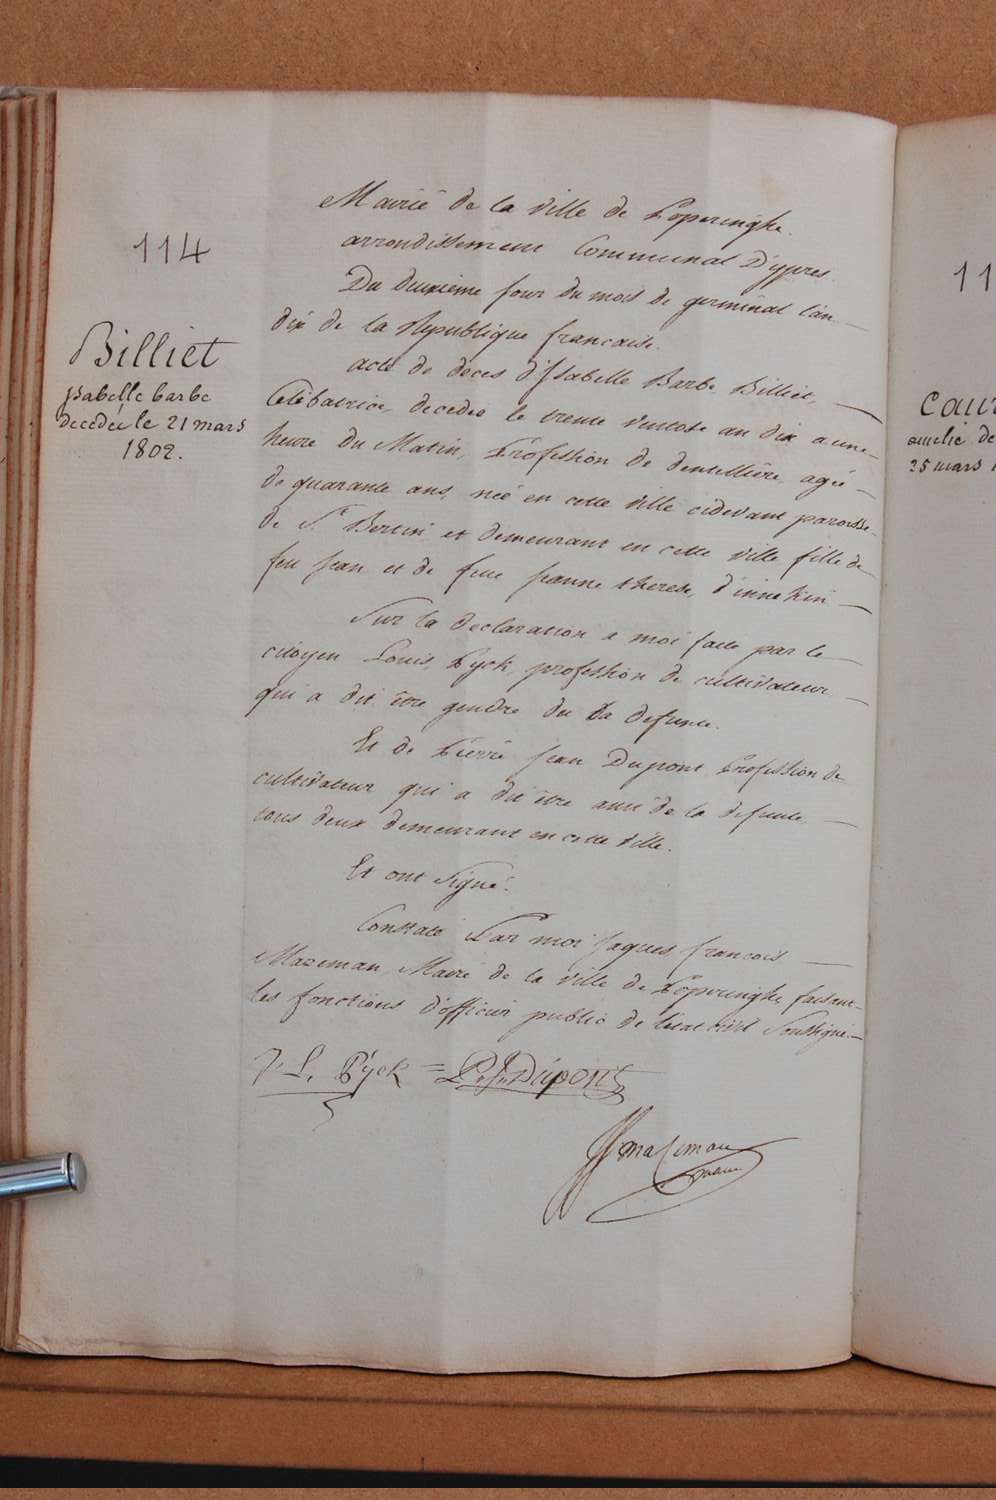 114
Billiet
isabelle barbe
decedée le 21 mars
1802.
Mairie de la ville de Poperinghe.
arrondissement Communal D'ypres.
Du deuxieme jour du mois de germinal l'an
dix de la Republique francaise.
acte de deces d'Isabelle Barbe Billiet,
Celibatrice, decedée le trente ventose an dix a une
heure du Matin, Profession de dentelliere, agée
de quarante ans, née en cette ville cidevant paroisse
de St. Bertin et demeurant en cette ville fille de
feu jean et de feue jeanne therese, d'innekin
Sur la declaration a moi faite par le
citoyen Louis Pyck, profession de cultivateur
qui a dit être gendre du la defunte.
Et de Pierre jean Dupont Profession de
cultivateur qui a dit être ami de la defunte
tous deux demeurant en cette ville.
Et ont signé.
Constaté Par moi jaques francois
Mazeman, Maire de la ville de Poperinghe faisant
les fonctions d'officier public de l'état civil Soussigné.
L. Pyck = P. J. Dupont
mazeman
maire
11
amelie de
25 mars 1